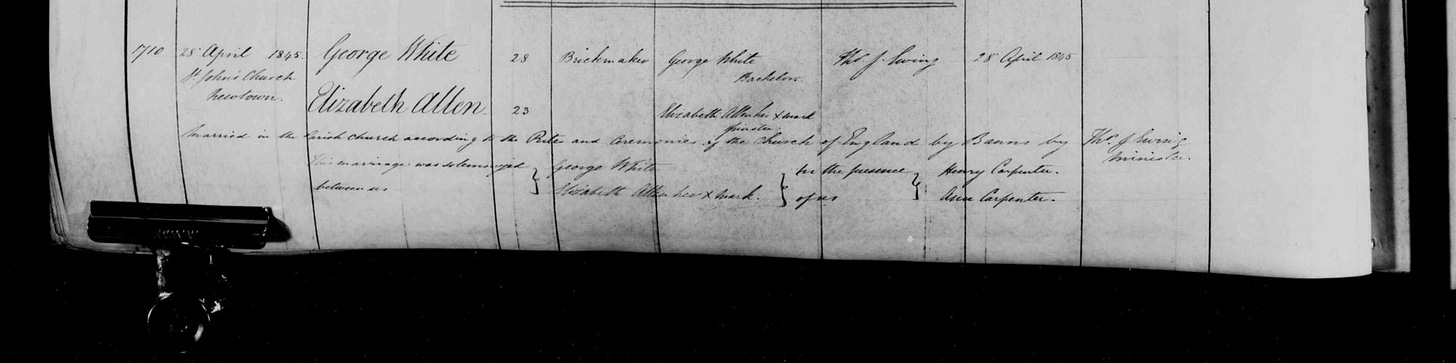 1710 28 April 1845. George White 28 Brickmaker George White Thos. J. Ewing 28 April 1845
St John's Church Bachelor
Newtown.
Elizabeth Allen. 23 Elizabeth Allen her x mark
Spinster
Married in the Parish Church according to the Rites and Ceremonies of the Church of England by Banns by Thos. J. Ewing
Minister.
This marriage was solemnized } George White } In the presence } Henry Carpenter.
between us } Elizabeth Allen her x mark. } of us } Ann Carpenter.